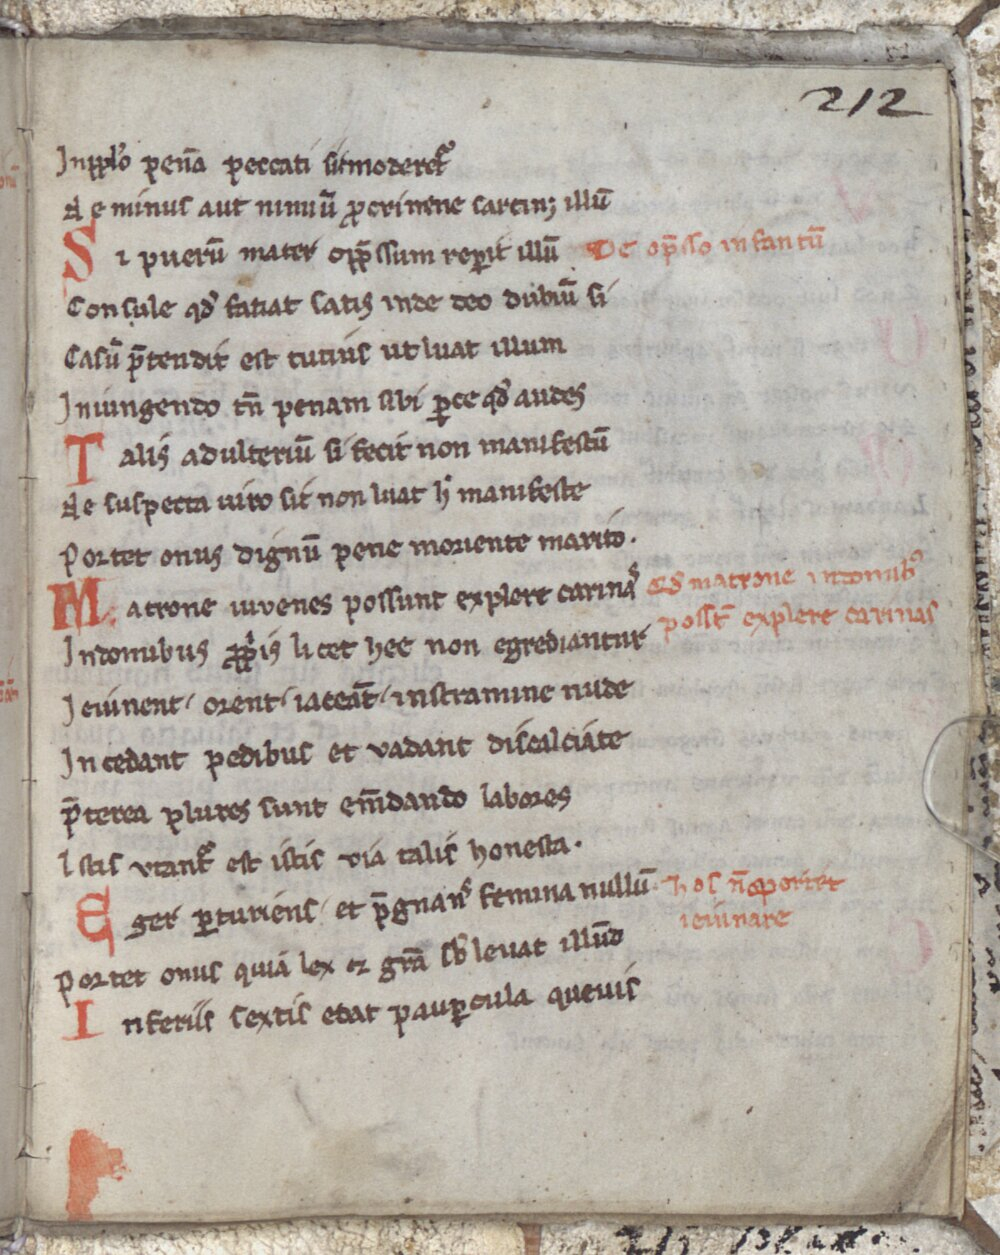 212
In pplo pena peccati sit moderet᷑
Ne minus aut nimiū ꝓ crimine sarcinꝫ illū
Si puerū mater opp̄ssum reperit illū De opp̄sso infantū
Consule qd̄ fatiat satis inde deo dubiū si
Casū p̄tendit est tutius ut luat illum
Iniungendo tn̄ penam sibi parce qd̄ audes
Talis adulteriū si fecit non manifestū
Ne suspecta viro sit non luat h' manifeste
Portet onus dignū pene moriente marito.
Matrone iuvenes possunt explere carinas Qd̄ matrone in domib᷒
possn̄t explere carinas
In domibus ꝓpriis licet hee non egrediantur
Ieiunent orent iaceāt in stramine nude
Incedant pedibus et vadant discalciate
P̄terea plures sunt em̄dando labores
Istis utant᷑ est istis via talis honesta.
Eger parturiens et p̄gnans femina nullū. Hos n̄ oportet
ieiunare
Portet onus quia lex et gr̄a sb̄levat illud
Inferiis sextis edat paupercula quevis